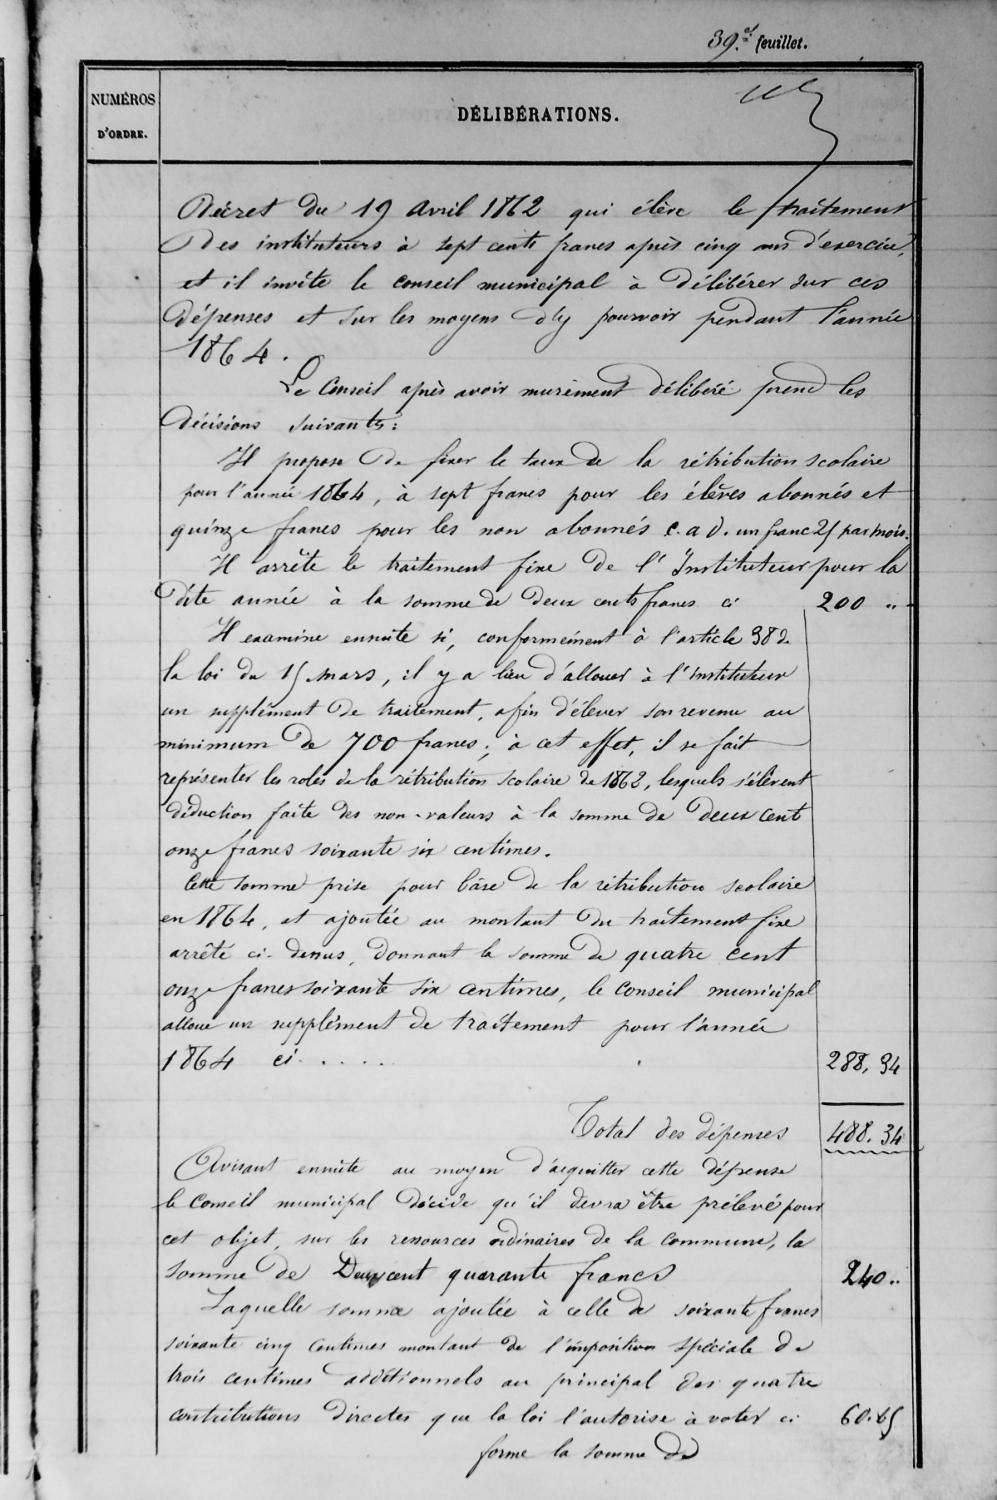 39.e feuillet.
NUMÉROS
D'ORDRE.
DÉLIBÉRATIONS.
Décret du 19 Avril 1862 qui élève le traitement
des instituteurs à sept cents francs après cinq ans d'exercice,
et il invite le conseil municipal à délibérer sur ces
dépenses et sur les moyens d'y pourvoir pendant l'année
1864.
Le Conseil après avoir murement délibéré prend les
décisions suivants:
Il propose de fixer le taux de la rétribution scolaire
pour l'année 1864, à sept francs pour les élèves abonnés et
quinze francs pour les non abonnés c. a d. un franc 25 par mois.
Il arrête le traitement fixe de l'Instituteur pour la
dite année à la somme de deux cents francs ci 200 "
Il examine ensuite si, conformément à l'article 38 de
la loi du 15 mars, il y a lieu d'allouer à l'instituteur
un supplément de traitement, afin d'élever son revenu au
minimum de 700 francs; à cet effet, il se fait
représenter les roles de la rétribution scolaire de 1862, lesquels s'élèvent
déduction faite des non-valeurs à la somme de deux cent
onze francs soixante six centimes.
Cette somme prise pour bâse de la rétribution scolaire
en 1864, et ajoutée au montant du traitement fixe
arrêté ci-dessus, donnant la somme de quatre cent
onze francs soixante six centimes, le Conseil municipal
alloue un supplément de traitement pour l'année
1864 ci. . . . . 288, 34
Total des dépenses 488. 34
Avisant ensuite au moyen d'acquitter cette dépense
le Conseil municipal décide qu'il devra être prélevé pour
cet objet, sur les ressources ordinaires de la commune, la
somme de Deux cent quarante francs 240 "
Laquelle somme ajoutée à celle de soixante francs
soixante cinq centimes montant de l'imposition spéciale de
trois centimes additionnels au principal des quatre
contributions directes que la loi l'autorise à voter ci 60.65
forme la somme de